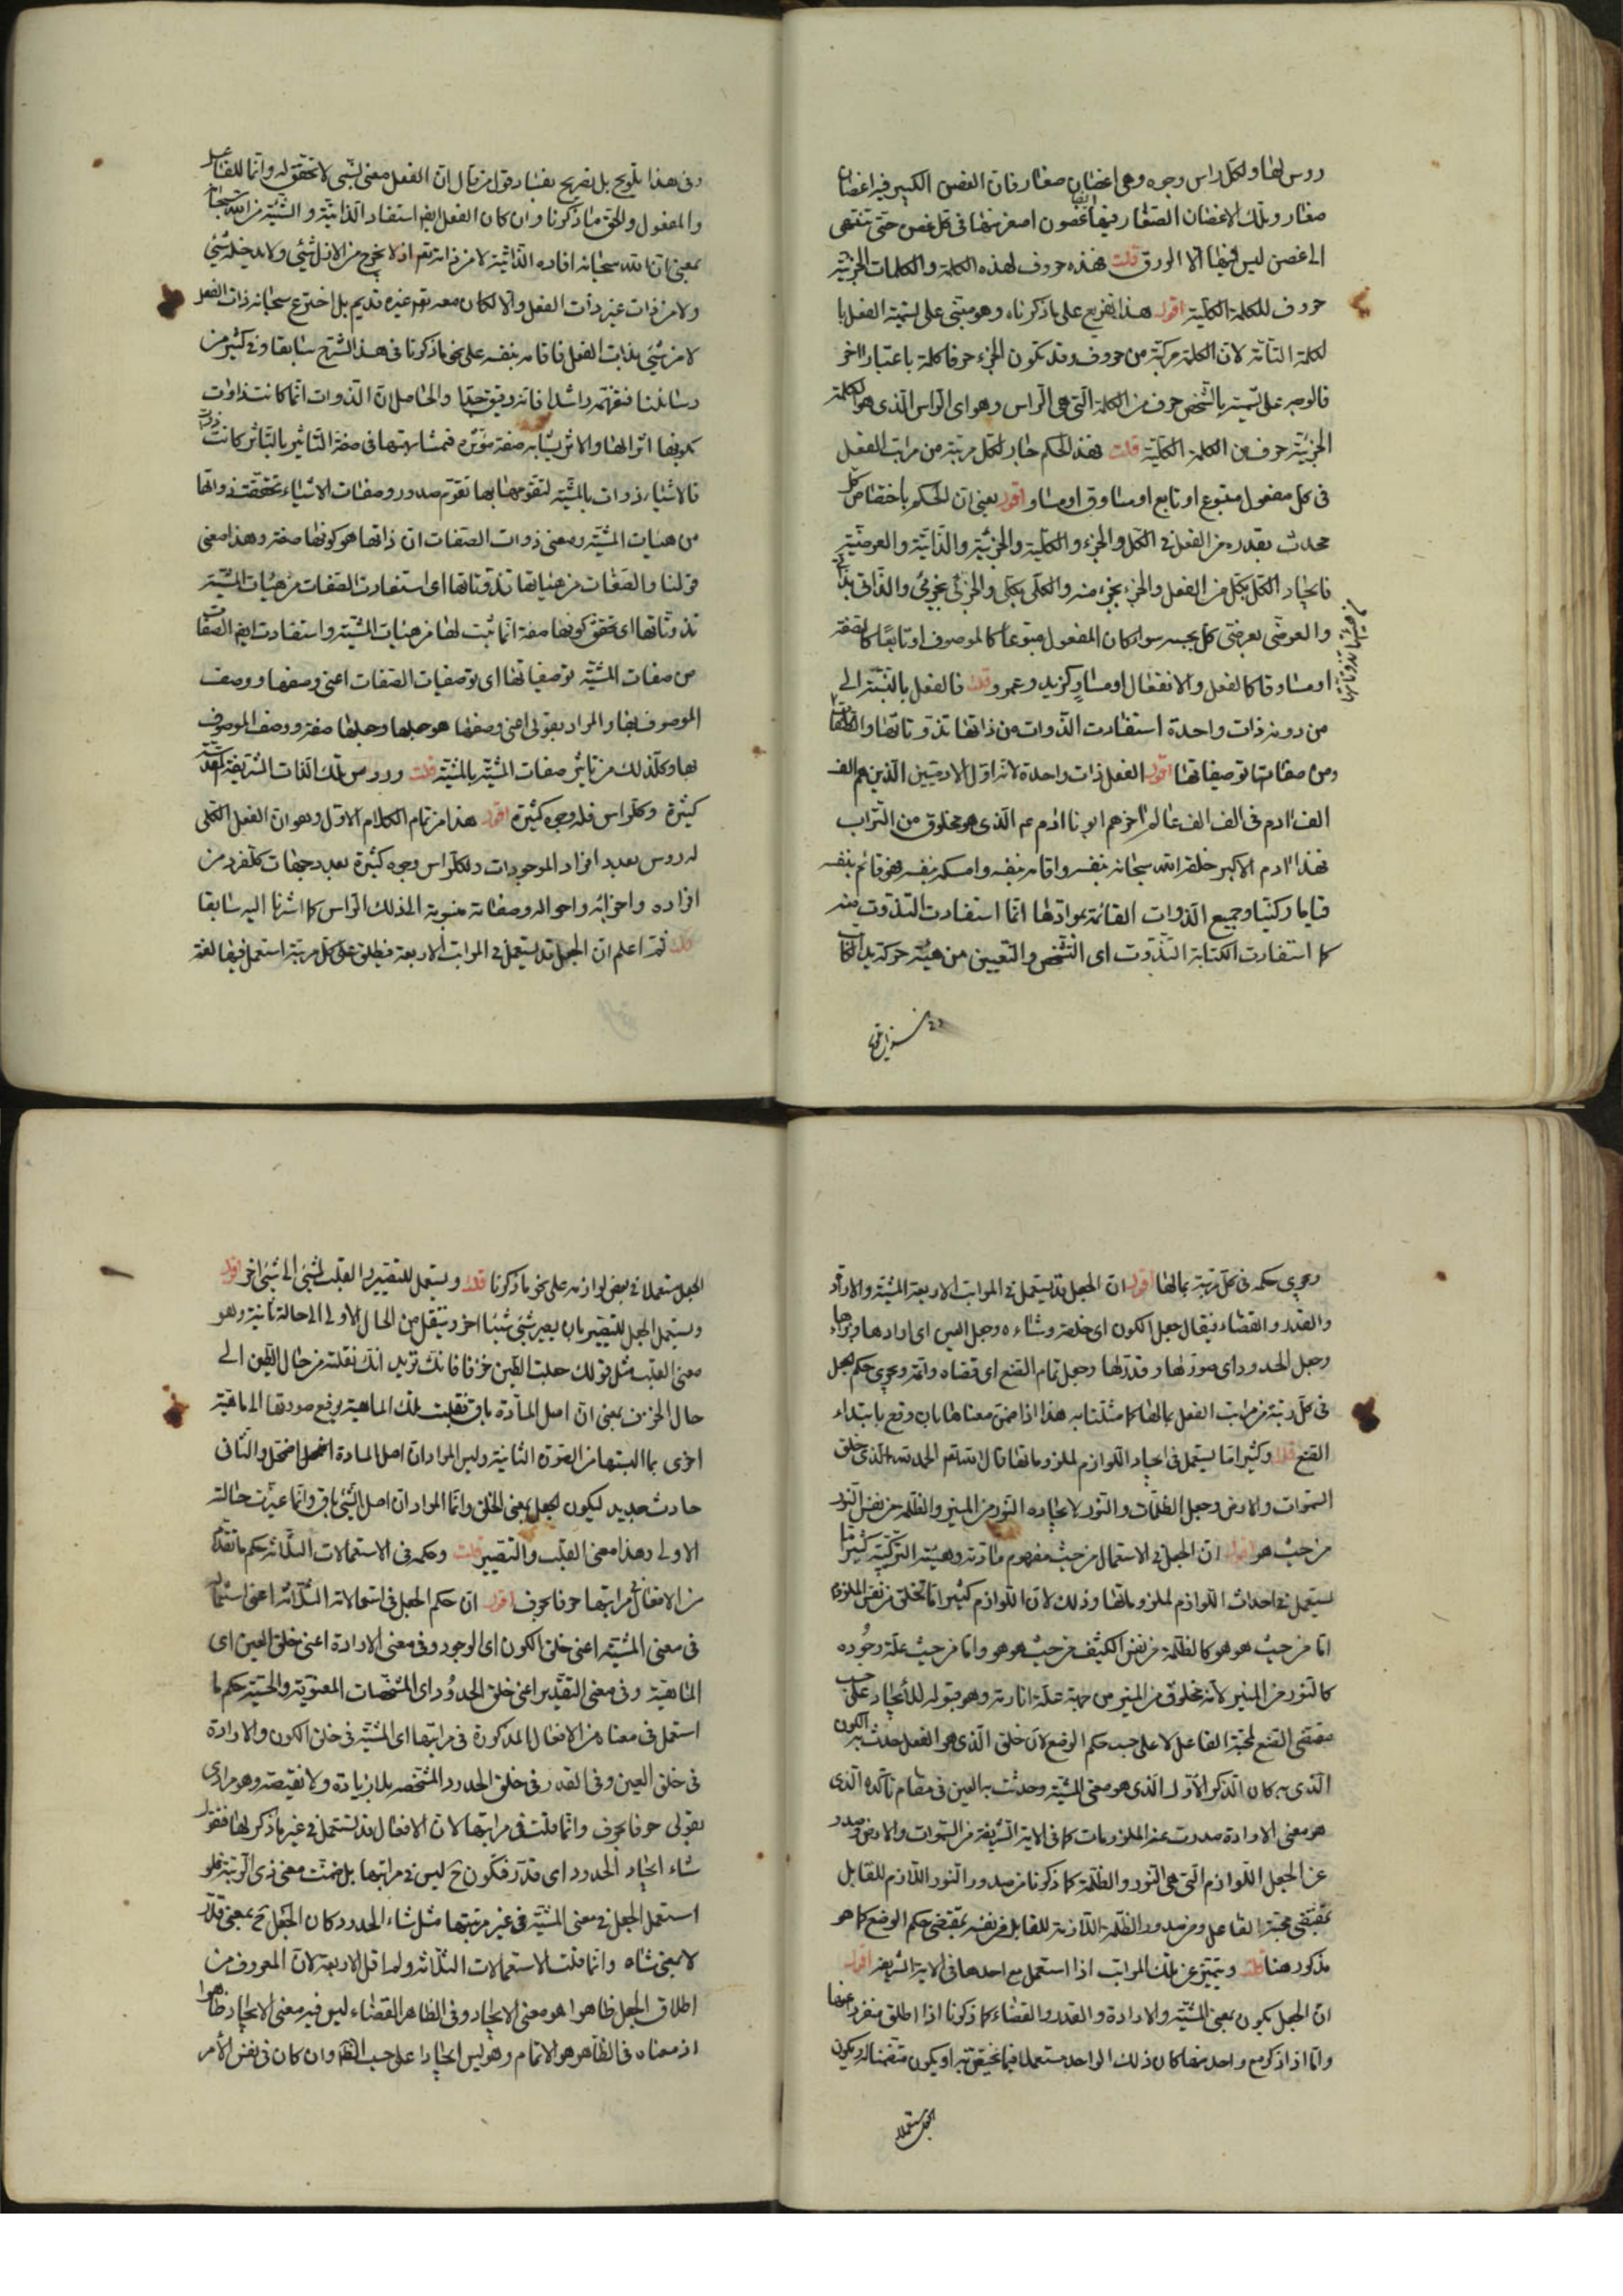 رؤس لها ولكل راس وجوه وهى اغصان صغار فان الغصن الكبير فيه اغصان
صغار وتلك الاغصان الصغار فيها ايضا غصون اصغر منها فى كل غصن حتى تنتهى
الى غصن ليس فيها الا الورق قلت فهذه حروف لهذه الكلمة والكلمات الجزئية
حروف للكلمة الكلية اقول هذا تفريع على ما ذكرناه وهو مبتنى على تسمية الفعل با
لكلمة التامة لان الكلمة مركبة من حروف وقد تكون الجزء حرفا كلمة باعتبار اخر
فالوجه على تسميته بالشخص حرف من الكلمة التى هى الراس وهو اى الراس الذى هو الكلمة
الجزئية حرف من الكلمة الكلية قلت فهذا الحكم جار لكل مرتبة من مراتب الفعل
فى كل مفعول متبوع او تابع او مساوق او مساو اقول يعنى ان الحكم باختصاص كل
محدث بقدره من الفعل فى الكل والجزء والكلية والجزئية والذاتية والعرضية
فايجاد الكل بكل من الفعل والجزء بجزء منه والكلى بكلى والجزئى بجزئى والذاتى بذاتى
والعرضى بعرضى كل بحسبه سواء كان المفعول متبوعا كالموصوف او تابعا كالصفة
او مساوقا كالفعل والانفعال او مساو كزيد وعمرو قلت فالفعل بالنسبة الى
من دونه ذات واحدة استفادت الذوات من ذاتها تذوتاتها والصفات
ومن صفاتها توصيفاتها اقول الفعل ذات واحدة لانه اول الادميين الذين هم الف
الف ادم فى الف الف عالم اخرهم ابونا ادم عم الذى هو مخلوق من التراب
فهذا ادم الاكبر خلقه الله سبحانه بنفسه واقامه بنفسه وامسكه بنفسه فهو قائم بنفسه
قياما ركنيا وجميع الذوات القائمة بموادها انما استفادت التذوت منه
كما استفادت الكتابة التذوت اى التشخص والتعيين من هيئة حركة يد الكاتب
وفى هذا تلويح بل تصريح بفساد قول من قال ان الفعل معنى نسبى لا تحقق له وانما للفاعل
والمفعول والحق ما ذكرنا وان كان الفعل ايضا استفاد الذاتية والشيئية من الله سبحانه
بمعنى ان الله سبحانه افاده الذاتية لا من ذاته تعم اذ لا يخرج من الازل شئ ولا يدخله شئ
ولا من ذات غير ذات الفعل والا لكان معه تعم غيره قديم بل اخترع سبحانه ذات الفعل
لا من شئ بذات الفعل فاقامه بنفسه على نحو ما ذكرنا فى هذا الشرح سابقا وفى كثير من
رسائلنا فتفهمه راشدا فانه دقيق جدا والحاصل ان الذوات انما كانت ذوات
بكونها اثرا لها والاثر يشابه صفة مؤثره فمشابهتها فى صفة التاثير بالتاثر كانت ذوات
فالاشياء ذوات بالمشية لتقومها بها تقوم صدور وصفات الاشياء تحققت ذواتها
من هيئات المشية ومعنى ذوات الصفات ان ذاتها هو كونها صفة وهذا معنى
قولنا والصفات من هيئاتها تذوتاتها اى استفادت الصفات من هيئات المشية
تذوتاتها اى تحقق كونها صفة انما ثبت لها من هيئات المشية واستفادت ايضا الصفات
من صفات المشية توصيفاتها اى توصفيات الصفات اعنى وصفها ووصف
الموصوف بها والمراد بقولى اعنى وصفها هو جعلها وجعلها صفة ووصف الموصوف
بها وكل ذلك من تاثير صفات المشية بالمشية قلت ورؤس تلك الذات الشريفة المقدسة
كثيرة وكل راس فله وجوه كثيرة اقول هذا من تمام الكلام الاول وهو ان الفعل الكلى
له رؤس بعدد افراد الموجودات ولكل راس وجوه كثيرة بعدد جهات كل فرد من
افراده واجزائه واحواله وصفاته منسوبة الى ذلك الراس كما اشرنا اليه سابقا
قلت ثم اعلم ان الجعل قد يستعمل فى المراتب الاربعة فيطلق على كل مرتبة استعمل فيها لغة
ويجرى حكمه فى كل مرتبة بمالها اقول ان الجعل قد يستعمل فى المراتب الاربعة المشية والارادة
والقدر والقضاء فيقال جعل الكون اى خلقه وشاءه وجعل العين اى ارادها وبرءها
وجعل الحدود اى صورها وقدرها وجعل تمام الصنع اى قضاه واتمه ويجرى حكم الجعل
فى كل رتبة من مراتب الفعل بمالها كما مثلنا به هذا اذا ضمن معناها بان وقع بابتداء
الصنع قلت وكثيرا ما يستعمل فى ايجاد اللوازم لملزوماتها قال الله تعم الحمد لله الذى خلق
السموات والارض وجعل الظلمات والنور لايجاده النور من المنير والظلمة من نفس النور
من حيث هو اقول ان الجعل فى الاستعمال من حيث مفهوم مادته وهيئته التركيبية كثيرا ما
يستعمل فى احداث اللوازم لملزوماتها وذلك لان اللوازم كثيرا ما تخلق من نفس الملزوم
اما من حيث هو هو كالظلمة من نفس الكثيف من حيث هو هو واما من حيث علة وجوده
كالنور من المنير لانه مخلوق من المنير من جهة علة انارته وهو قبوله للايجاد على حسب
مقتضى الصنع لمحبة الفاعل لا على حسب حكم الوضع لان خلق الذى هو الفعل حدث به الكون
الذى به كان الذكر الاول الذى هو معنى المشية وحدثت به العين فى مقام تاكده الذى
هو معنى الارادة صدرت عنه الملزومات كما فى الاية الشريفة من السموات والارض وصدر
عن الجعل اللوازم التى هى النور والظلمة كما ذكرنا من صدور النور اللازم للقابل
بمقتضى محبة الفاعل ومن صدور الظلمة اللازمة للقابل من نفسه بمقتضى حكم الوضع كما هو
مذكور هنا قلت ويتميز عن تلك المراتب اذا استعمل مع احدها فى الاية الشريفة اقول
ان الجعل يكون بمعنى المشية والارادة والقدر والقضاء كما ذكرنا اذا اطلق منفردا عنها
واما اذا ذكر مع واحد منها كان ذلك الواحد مستعملا فيما يختص به او يكون متضمنا له ويكون
الجعل مستعملا
الجعل مستعملا فى بعض لوازمه على نحو ما ذكرنا قلت ويستعمل للتصيير والقلب لشئ الى شئ اخر اقول
ويستعمل الجعل للتصيير بان يصير شئ شيئا اخر وينتقل من الحال الاولى الى حالة ثانية وهو
معنى القلب مثل قولك جعلت الطين خزفا فانك تريد انك نقلته من حال الطين الى
حال الخزف بمعنى ان اصل المادة باق نقلت تلك الماهية برفع صورتها الى ماهية
اخرى بما البستها من الصورة الثانية وليس المراد ان اصل المادة اضمحل والثانى
حادث جديد ليكون الجعل بمعنى الخلق وانما المراد ان اصل الشئ باق وانما غيرت حالته
الاولى وهذا معنى القلب والتصيير قلت وحكمه فى الاستعمالات الثلاثة حكم ما تقدم
من الافعال فى مراتبها حرفا بحرف اقول ان حكم الجعل فى استعمالاته الثلاثة اعنى استعماله
فى معنى المشية اعنى خلق الكون اى الوجود وفى معنى الارادة اعنى خلق العين اى
الماهية وفى معنى التقدير اعنى خلق الحدود اى المشخصات المعنوية والحسية حكم ما
استعمل فى معناه من الافعال المذكورة فى مراتبها اى المشية فى خلق الكون والارادة
فى خلق العين وفى القدر فى خلق الحدود المشخصة بلا زيادة ولا نقيصة وهو مرادى
بقولى حرفا بحرف وانما قلت فى مراتبها لان الافعال قد تستعمل فى غير ما ذكر لها فتقول
شاء ايجاد الحدود اى قدر فتكون ح ليس فى مراتبها بل ضمنت معنى ذى الرتبة فلو
استعمل الجعل فى معنى المشية فى غير مرتبتها مثل شاء الحدود كان الجعل ح بمعنى قدر
لا بمعنى شاء وانما قلت الاستعمالات الثلاثة ولم اقل الاربعة لان المعروف من
اطلاق الجعل ظاهرا هو معنى الايجاد وفى الظاهر القضاء ليس فيه معنى الايجاد ظاهرا
اذ معناه فى الظاهر هو الاتمام وهو ليس ايجادا على حسب الظاهر وان كان فى نفس الامر